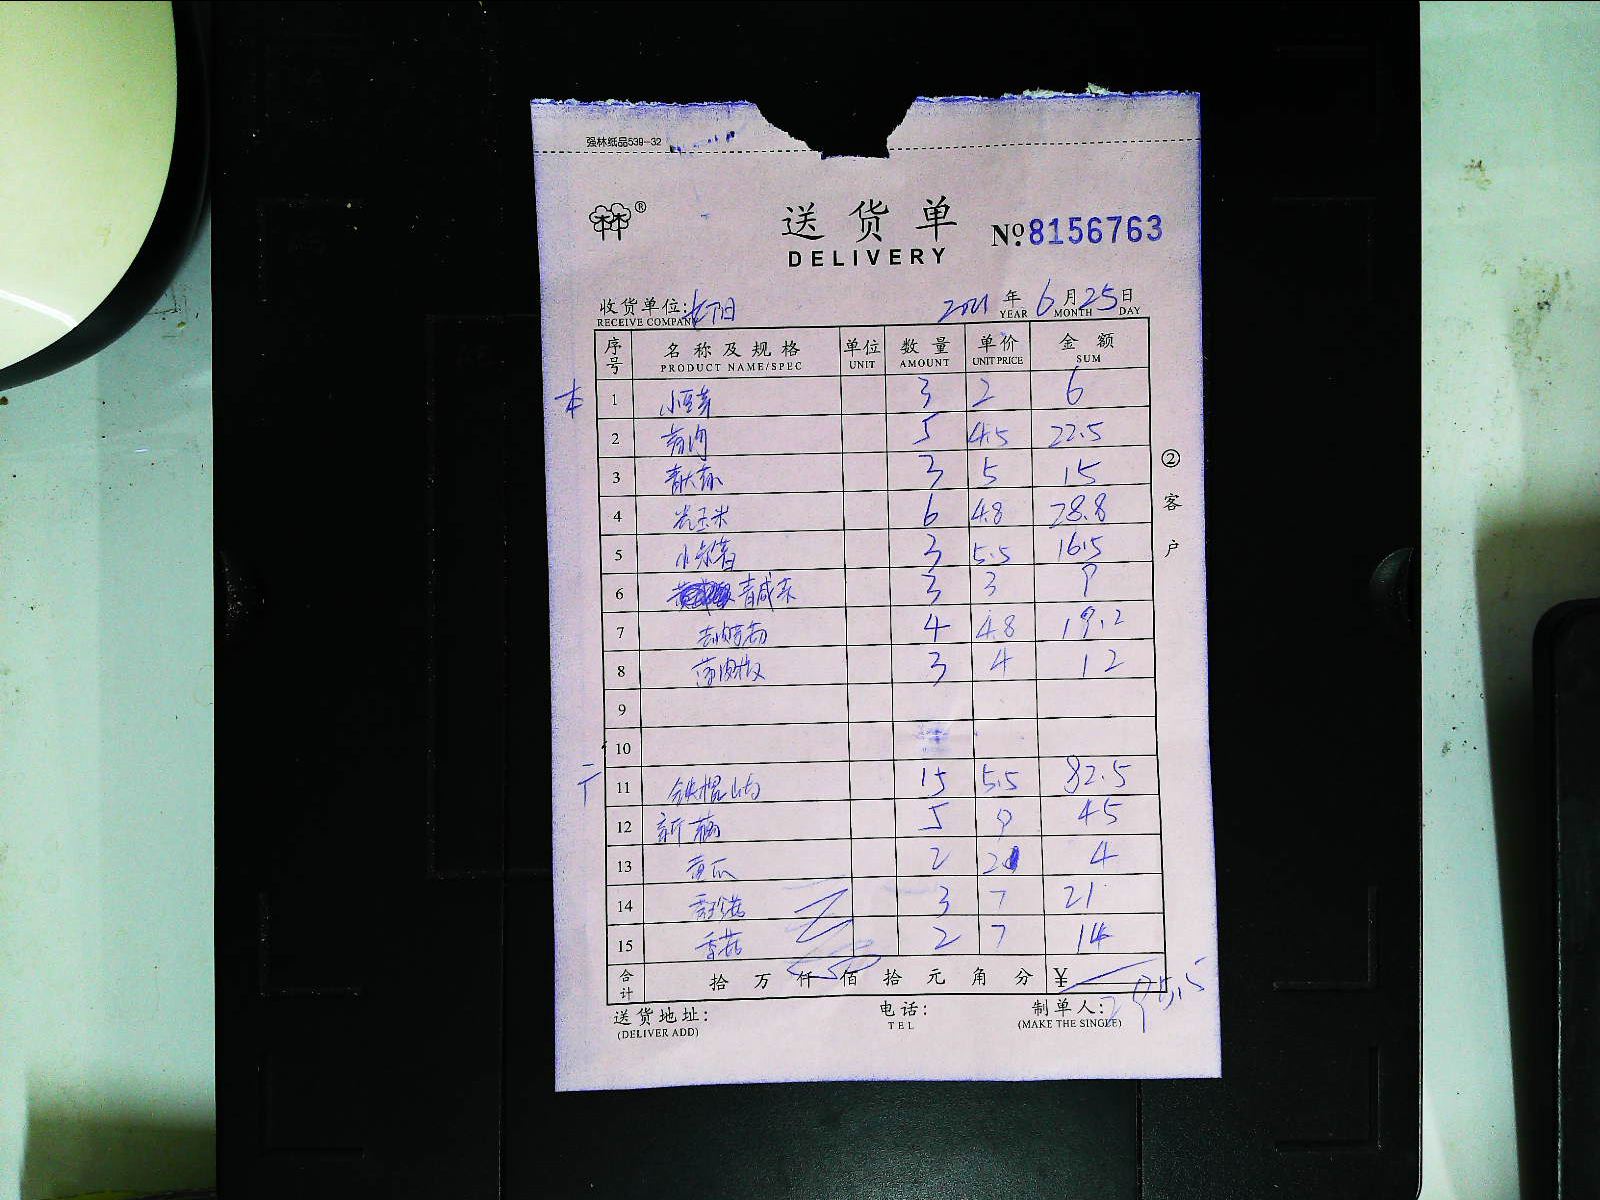 强林纸品539-32
®
送货单 № 8156763
DELIVERY
收货单位: 2021 年 6 月 25 日
RECEIVE COMPANY YEAR MONTH DAY
序号 名称及规格 单位 数量 单价 金额
PRODUCT NAME/SPEC UNIT AMOUNT UNIT PRICE SUM
本 1 小豆芽 3 2 6
2 5 4.5 22.5
3 3 5 15
4 玉米 6 4.8 28.8
5 小 3 5.5 16.5
6 青咸菜 3 3 9
7 4 4.8 19.2
8 3 4 12
9
10
11 铁棍山药 15 5.5 82.5
12 新 5 9 45
13 黄瓜 2 2 4
14 3 7 21
15 香菇 2 7 14
合计 拾 万 仟 佰 拾 元 角 分 ¥ 295.5
送货地址: 电话: 制单人:
(DELIVER ADD) TEL (MAKE THE SINGLE)
②客户